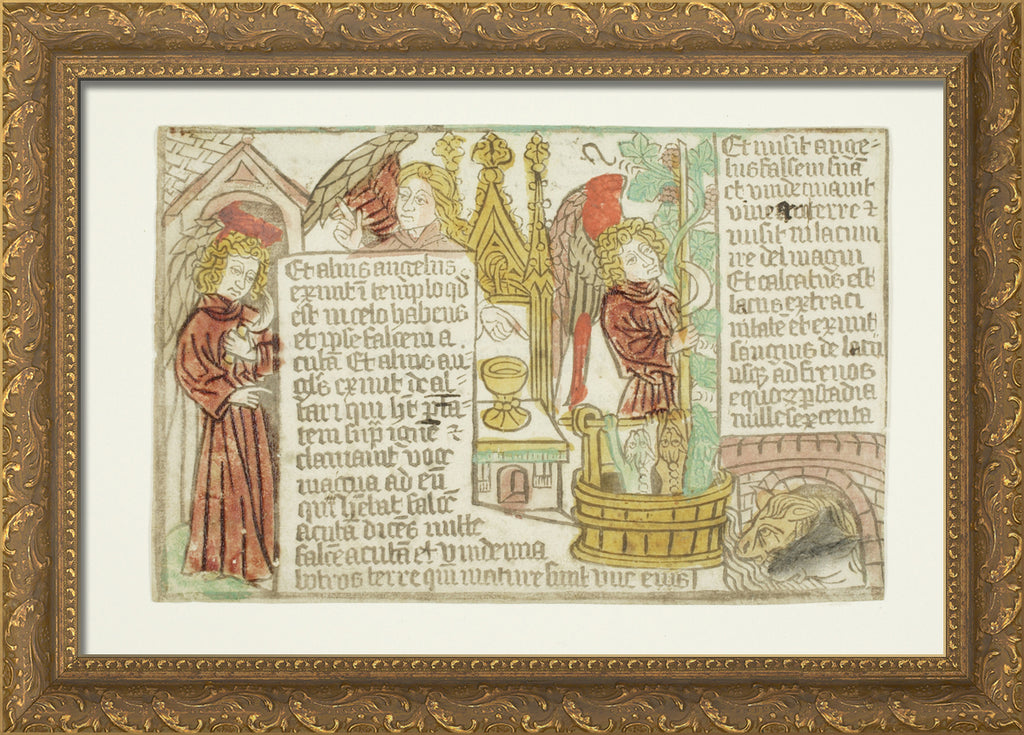 Et alius angelus
exivit i templo qd
est in celo habens
et ipse falcem a
cutā Et alius an
gl's exivit de al-
tari qui ht ptā
tem sup ignē ⁊
clamavit voce
magna ad eū
qui hebat falcē
acutā dicēs mitte
falcē acutā et vindemia
botros terre qui mature sunt uve eius
Et misit ange-
lus falcem suā
et vindemiavit
vineā terre ⁊
misit in lacum
ire dei magni
Et calcatus est
lacus extra ci
vitate et exivit
sanguis de lacu
usq; ad frenos
equoꝝ p stadia
mille sexcenta